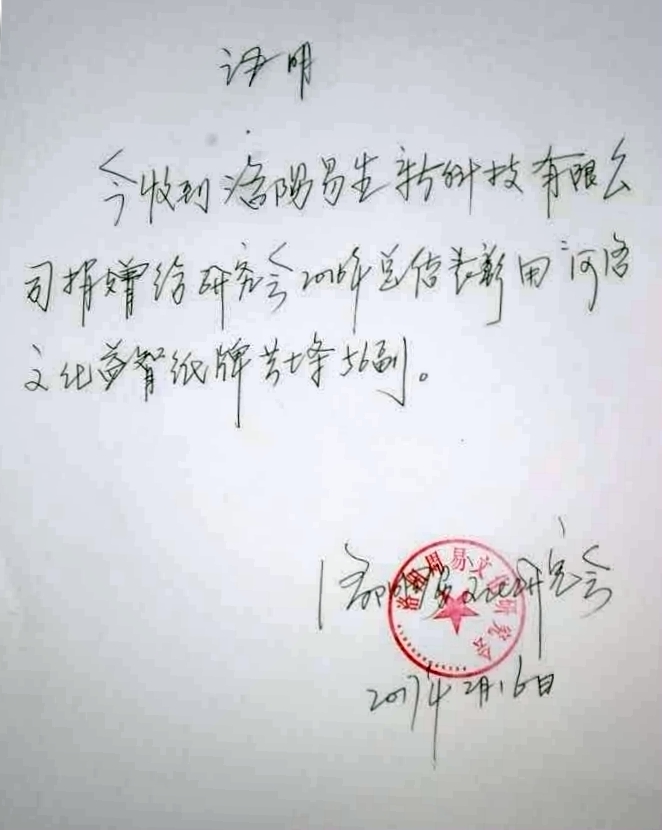 证明
今收到洛阳易生新科技有限公
司捐赠给研究会2016年总结表彰用河洛
文化益智纸牌共七条56副。
洛阳周易文化研究会
洛阳周易文化研究会
2017年2月16日